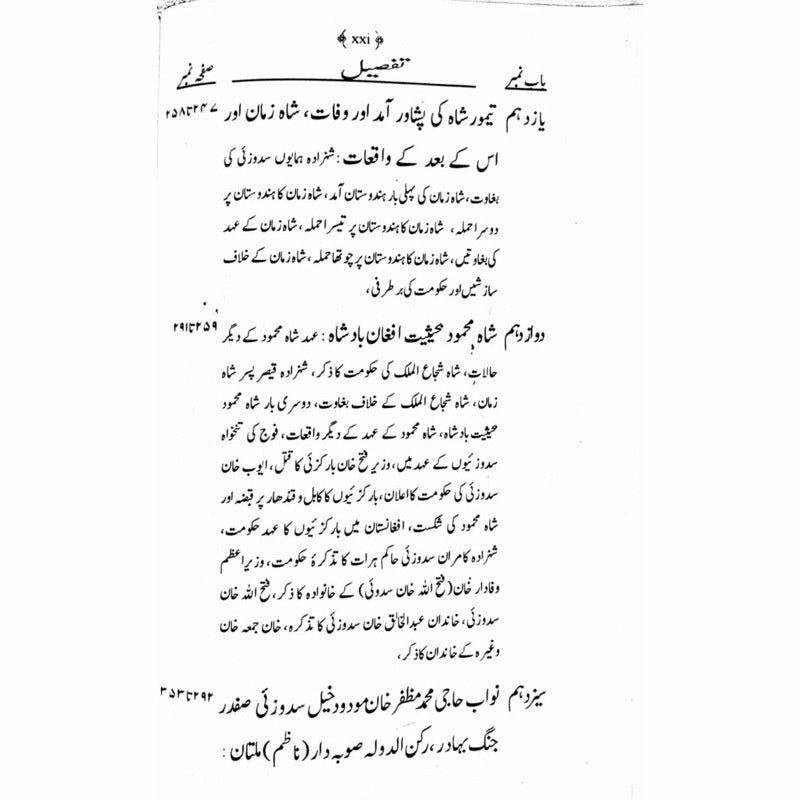 ﴾ xxi ﴿
باب نمبر تفصیل صفحہ نمبر
یازدہم تیمور شاہ کی پشاور آمد اور وفات، شاہ زمان اور ۲۴۷ تا ۲۵۸
اس کے بعد کے واقعات : شنرادہ ہمایوں سدوزئی کی
بغاوت، شاہ زمان کی پہلی بار ہندوستان آمد، شاہ زمان کا ہندوستان پر
دوسرا حملہ، شاہ زمان کا ہندوستان پر تیسرا حملہ، شاہ زمان کے عہد
کی بغاوتیں، شاہ زمان کا ہندوستان پر چوتھا حملہ، شاہ زمان کے خلاف
سازشیں اور حکومت کی برطرفی،
دوازدہم شاہ محمود بحیثیت افغان بادشاہ : عہد شاہ محمود کے دیگر ۲۵۹ تا ۲۹۱
حالات، شاہ شجاع الملک کی حکومت کا ذکر، شنرادہ قیصر پسر شاہ
زمان، شاہ شجاع الملک کے خلاف بغاوت، دوسری بار شاہ محمود
بحیثیت بادشاہ، شاہ محمود کے عہد کے دیگر واقعات، فوج کی تنخواہ
سدوزئیوں کے عہد میں، وزیر فتح خان بارکزئی کا قتل، ایوب خان
سدوزئی کی حکومت کا اعلان، بارکزئیوں کا کابل و قندھار پر قبضہ اور
شاہ محمود کی شکست، افغانستان میں بارکزئیوں کا عہد حکومت،
شنرادہ کامران سدوزئی حاکم ہرات کا تذکرۂ حکومت، وزیراعظم
وفادار خان (فتح اللہ خان سدوئی) کے خانوادہ کا ذکر، فتح اللہ خان
سدوزئی، خاندان عبدالخالق خان سدوزئی کا تذکرہ، خان جمعہ خان
وغیرہ کے خاندان کا ذکر،
سیزدہم نواب حاجی محمد مظفر خان مودود خیل سدوزئی صفدر ۲۹۲ تا ۳۵۳
جنگ بہادر، رکن الدولہ صوبہ دار (ناظم) ملتان :